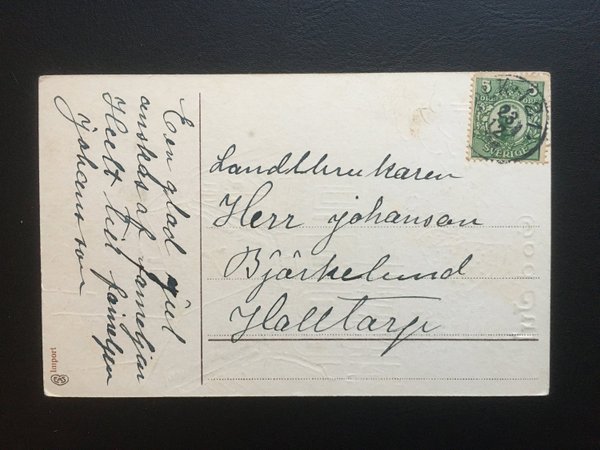 En glad jul
önskas af fameljen
Hult till familjen
Johansson
Landtbrukaren
Herr Johanson
Björkelund
Halltorp
5
5
SVERIGE
Import